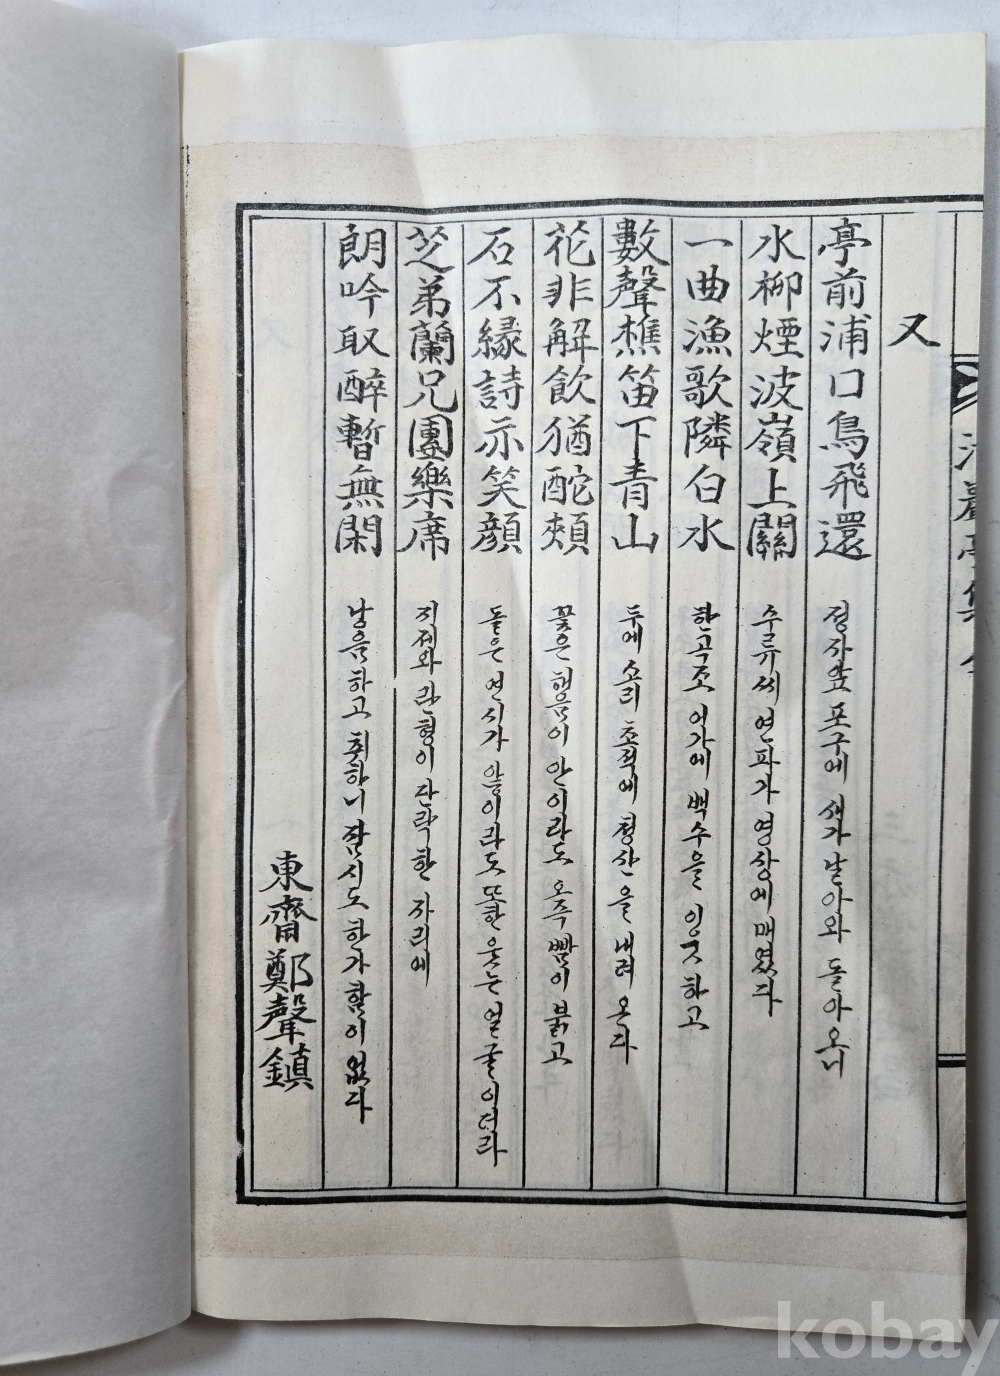 又
亭前浦口鳥飛還 정자앞 포구에 새가 날아와 돌아오니
水柳煙波嶺上關 수류씨 연파가 영상에 매였다
一曲漁歌隣白水 한곡조 어가에 백수을 잉굿하고
數聲樵笛下青山 두에 소리 초적에 청산을 내려온다
花非解飲猶酡頰 꽃은 해음이 안이라도 오즉 빰이 붉고
石不緣詩亦笑顔 돌은 연시가 않이라도 또한 웃는 얼굴이더라
芝弟蘭兄團樂席 지제와 란형이 단락한 자리에
朗吟取醉暫無閑 낭음하고 취하니 잠시도 한가함이 없다
東齋鄭聲鎮
亭集
kobay